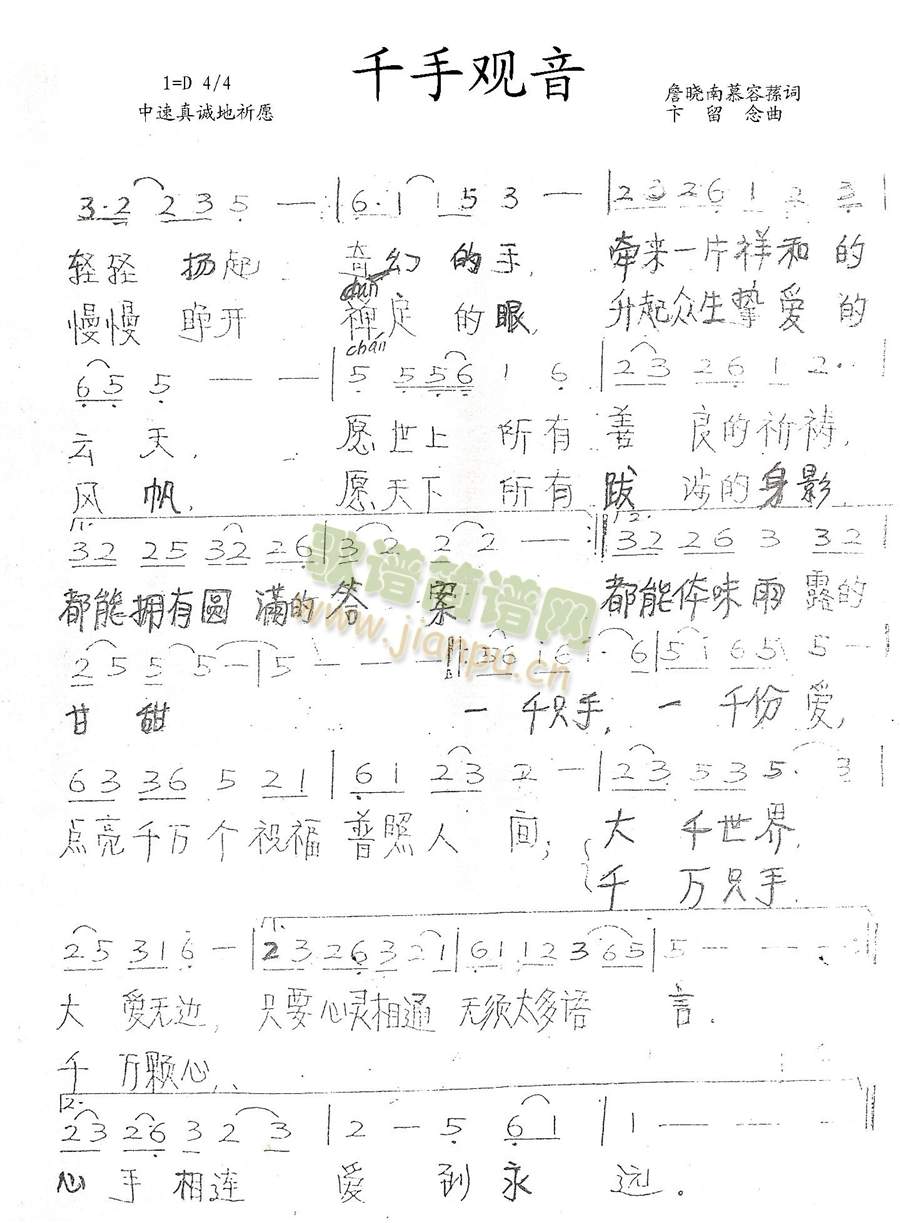 千手观音
1=D 4/4
中速真诚地祈愿
詹晓南慕容荪词
卞 留 念曲
3·2 2 3 5 — | 6·1 1 5 3 — | 2 3 2 6 1 2 3 |
轻轻 扬起 奇幻 的手, 牵来一片祥和的
chán
慢慢 睁开 禅定 的眼, 升起众生挚爱的
chán
6 5 5 — — | 5 5 5 6 1 6 | 2 3 2 6 1 2·· |
云 天, 愿世上 所有 善 良的祈祷,
风 帆, 愿天下 所有 跋 涉的身影,
1. 2.
3 2 2 5 3 2 2 6 | 3 2 2 2 — :‖ 3 2 2 6 3 3 2 |
都能拥有圆 满的 答 案 都能体味雨 露的
歌谱简谱网
www.jianpu.cn
2 5 5 5 — | 5 — — — ‖: 5 6 1 6 · 6 | 5 1 6 5 5 — |
甘 甜 一 千只手, 一 千份 爱,
6 3 3 6 5 2 1 | 6 1 2 3 2 — | 2 3 5 3 5 · 3 |
点亮千万个祝福 普照人 间; 大 千世界
千 万只手
1.
2 5 3 1 6 — | 2 3 2 6 3 2 1 | 6 1 1 2 3 6 5 | 5 — — — :‖
大 爱无边, 只要心灵相通 无须太多语 言.
千 万颗心,
2.
2 3 2 6 3 2 3 | 2 — 5 6 1 | 1 — — — ‖
心 手 相连 爱 到 永 远。